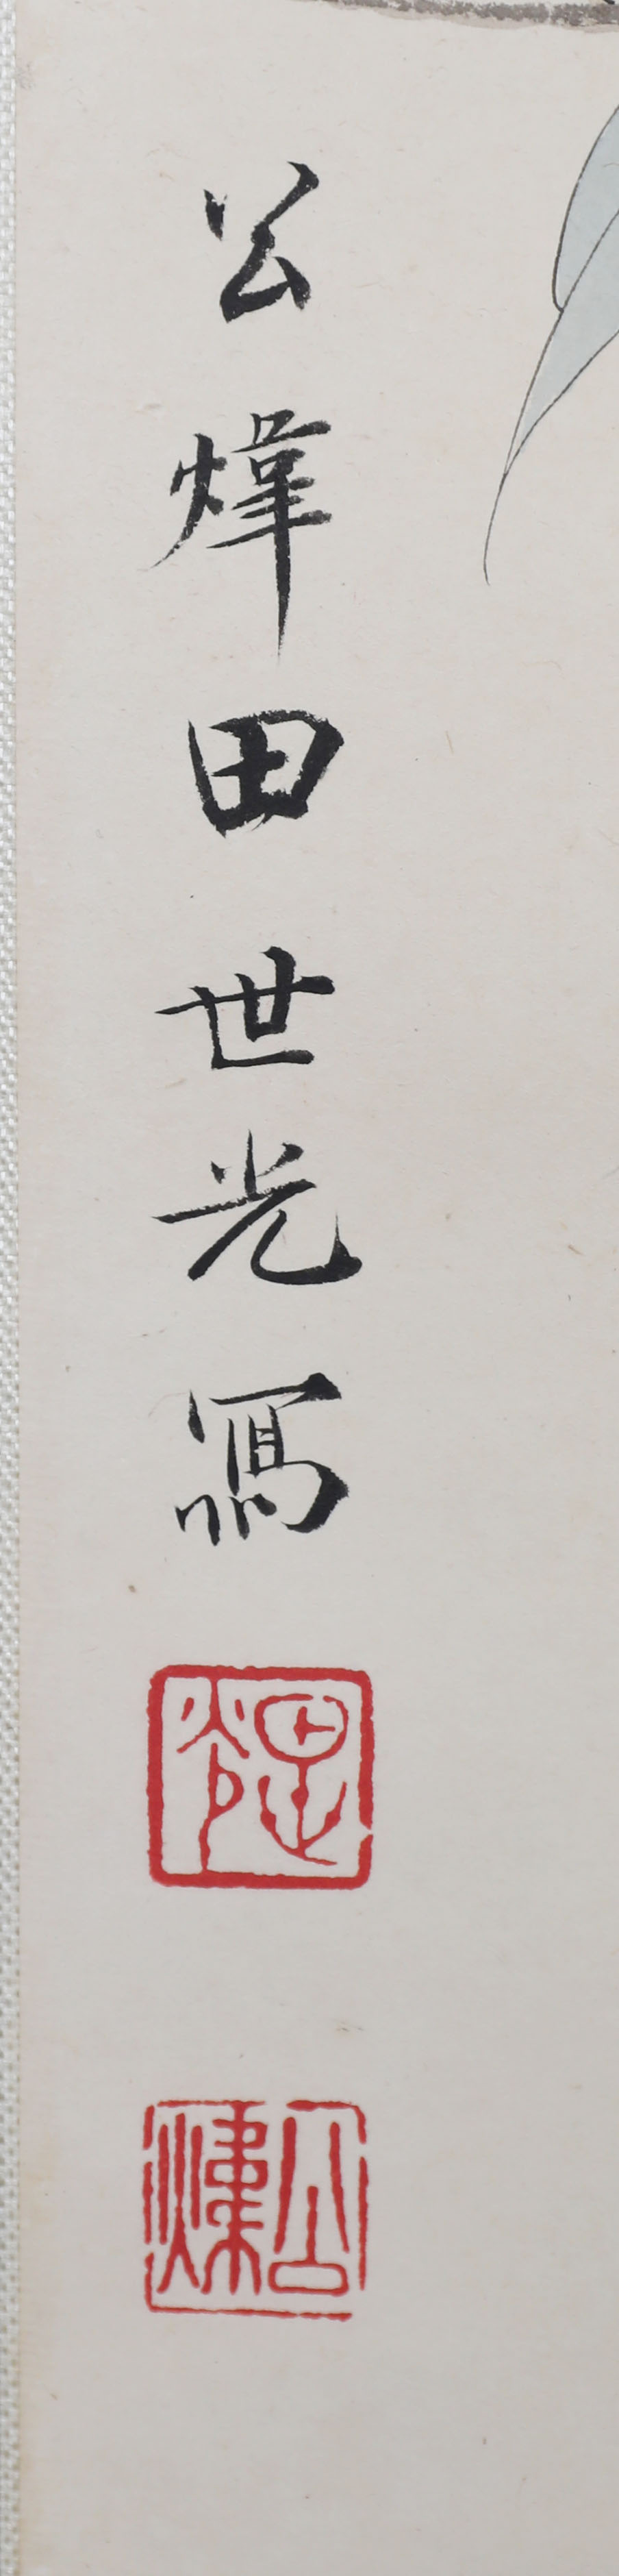 公煒田世光寫
公煒